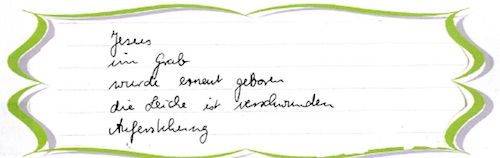 Jesus
im Grab
wurde erneut geboren
die Leiche ist verschwunden
Auferstehung